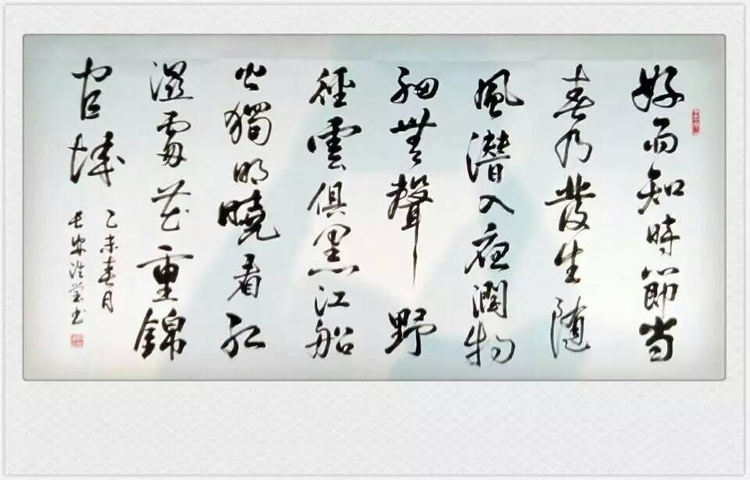 好雨知時節当
春乃發生随
風潛入夜潤物
細無聲野
徑雲俱黑江船
火獨明曉看红
濕處花重錦
官城
乙未春月
长安书